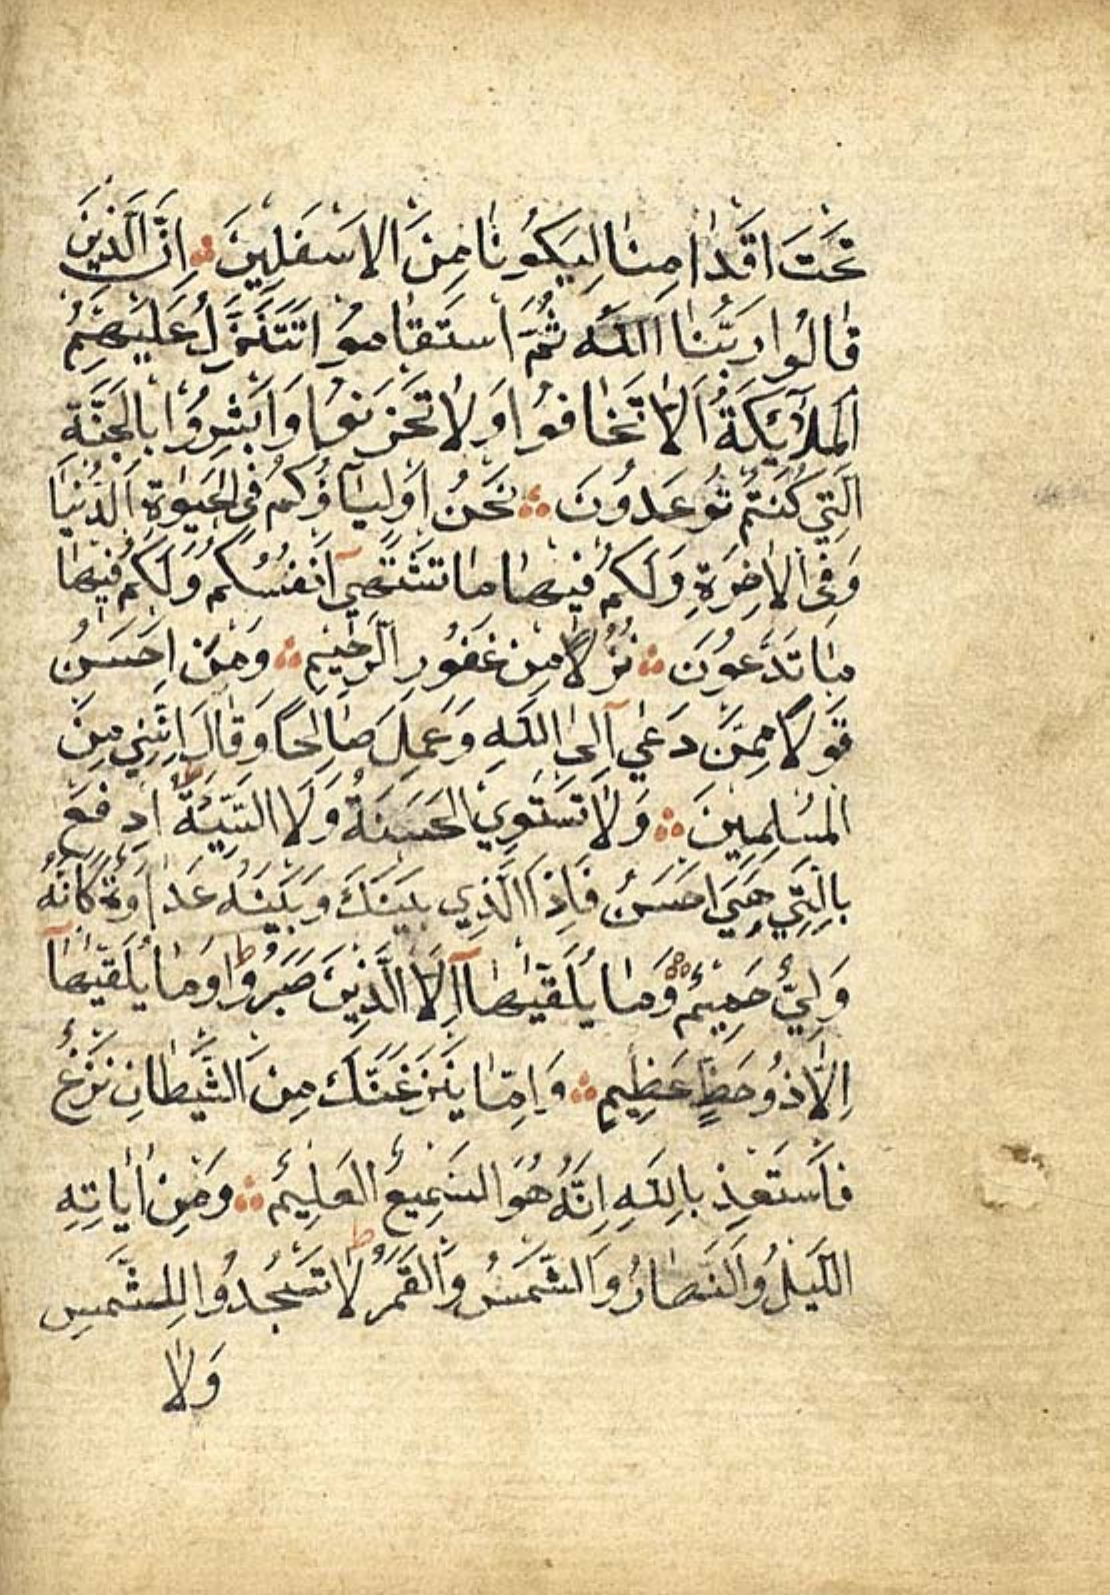 تَحْتَ اَقْدَامِنَا لِيَكُونَا مِنَ الاَسْفَلِينَ ۞ اِنَّ الَّذِينَ
قَالُوا رَبُّنَا اللّٰهُ ثُمَّ اسْتَقَامُوا تَتَنَزَّلُ عَلَيْهِمُ
الْمَلٰٓئِكَةُ اَلاَّ تَخَافُوا وَلاَ تَحْزَنُوا وَاَبْشِرُوا بِالْجَنَّةِ
الَّتِي كُنْتُمْ تُوعَدُونَ ۞ نَحْنُ اَوْلِيَآؤُكُمْ فِي الْحَيٰوةِ الدُّنْيَا
وَفِي الاٰخِرَةِ وَلَكُمْ فِيهَا مَا تَشْتَهِيٓ اَنْفُسُكُمْ وَلَكُمْ فِيهَا
مَا تَدَّعُونَ ۞ نُزُلاً مِنْ غَفُورٍ الرَّحِيمٍ ۞ وَمَنْ اَحْسَنُ
قَوْلاً مِمَّنْ دَعٰي آلَى اللّٰهِ وَعَمِلَ صَالِحًا وَقَالَ اِنَّنِي مِنَ
الْمُسْلِمِينَ ۞ وَلاَ تَسْتَوِي الْحَسَنَةُ وَلاَ السَّيِّئَةُ ط اِدْفَعْ
بِالَّتِي هِيَ اَحْسَنُ فَاِذَا الَّذِي بَيْنَكَ وَبَيْنَهُ عَدَاوَةٌ كَاَنَّهُ
وَلِيٌّ حَمِيمٌ ۞ وَمَا يُلَقّٰيهَآ اِلاَّ الَّذِينَ صَبَرُوا ط وَمَا يُلَقّٰيهَآ
اِلاَّ ذُو حَظٍّ عَظِيمٍ ۞ وَاِمَّا يَنْزَغَنَّكَ مِنَ الشَّيْطَانِ نَزْغٌ
فَاسْتَعِذْ بِاللّٰهِ اِنَّهُ هُوَ السَّمِيعُ الْعَلِيمُ ۞ وَمِنْ اٰيَاتِهِ
اللَّيْلُ وَالنَّهَارُ وَالشَّمْسُ وَالْقَمَرُ ط لاَ تَسْجُدُوا لِلشَّمْسِ
وَلاَ